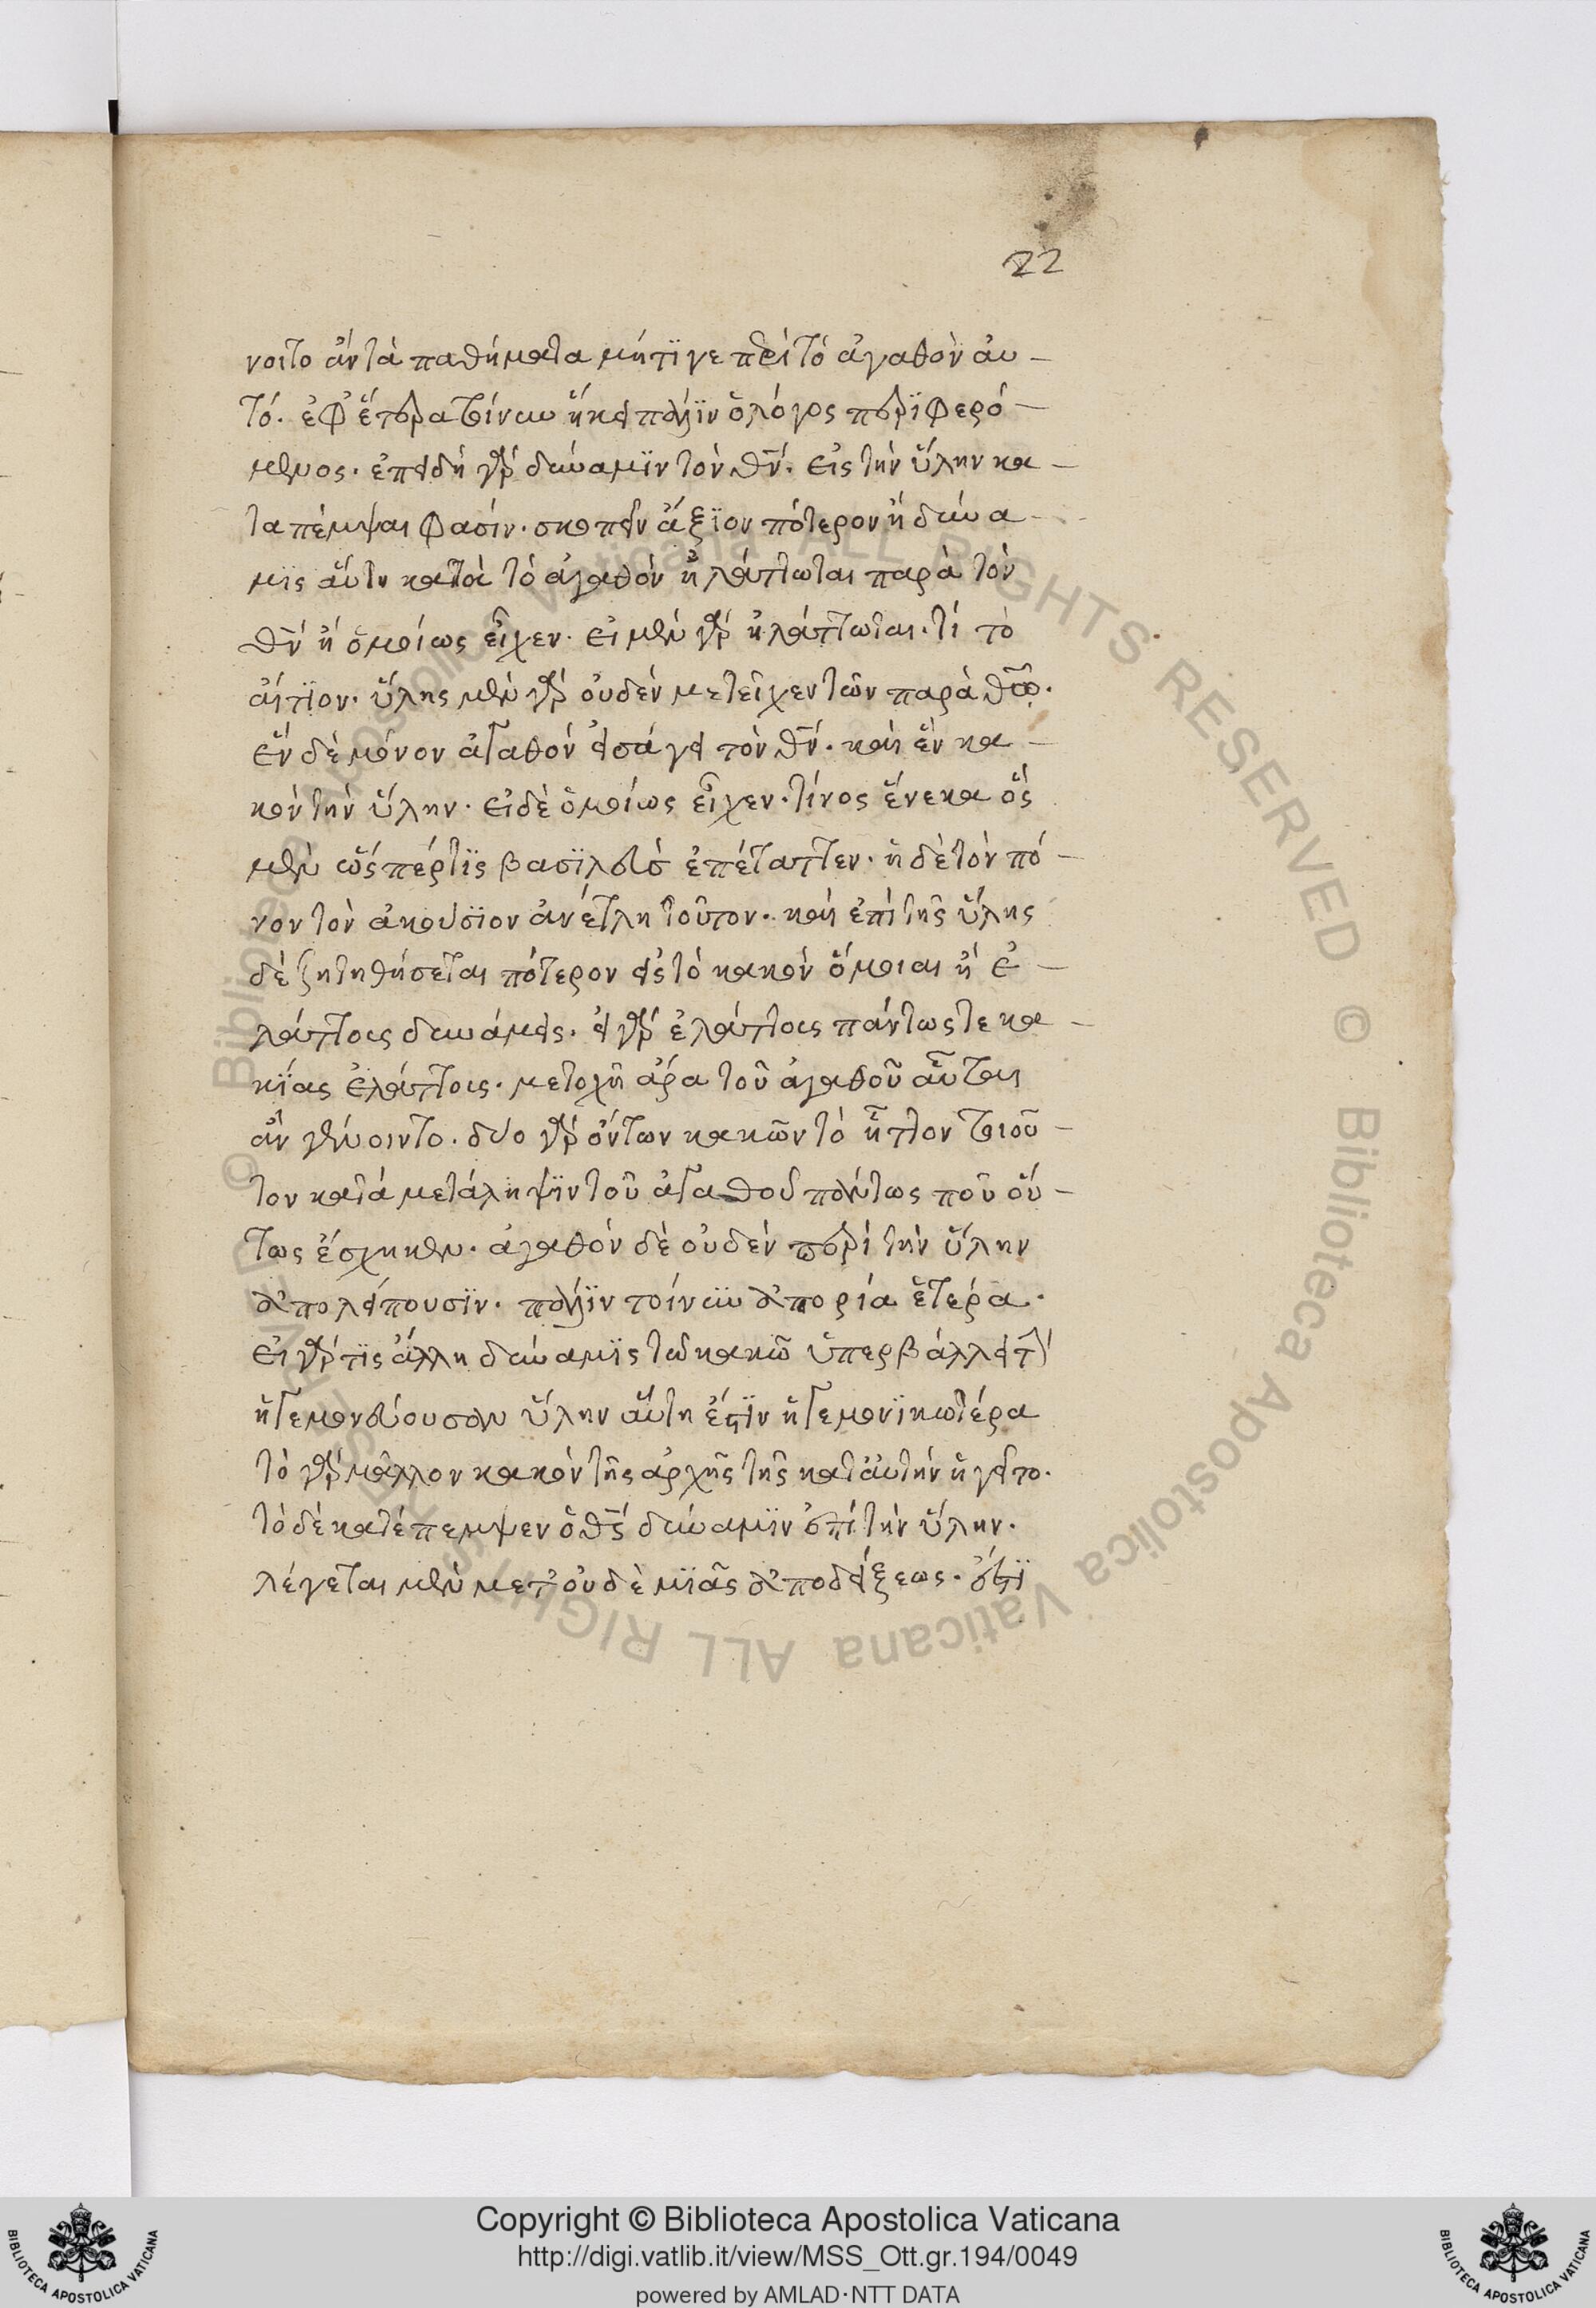 22
νοιτο ἂν τὰ παθήματα μήτϊ γε περὶ τὸ ἀγαθὸν αὐ-
τό. ἐφ' ἕτερα τοίνυν ἥκει πάλϊν ὁ λόγος περϊφερό-
μενος. ἐπειδὴ γὰρ δύναμϊν τὸν θν. εἰς τὴν ὕλην κα-
ταπέμψαι φασίν. σκοπεῖν ἄξϊον πότερον ἡ δύνα-
μϊς αὕτη κατὰ τὸ ἀγαθὸν ἠλάττωται παρὰ τὸν
θν ἢ ὁμοίως εἶχεν. εἰ μὲν γὰρ ἠλάττωται. τί τὸ
αἴτϊον. ὕλης μὲν γὰρ οὐδὲν μετεῖχεν τῶν παρὰ θω.
ἓν δὲ μόνον ἀγαθὸν εἰσάγει τὸν θν. καὶ ἓν κα-
κὸν τὴν ὕλην. εἰ δὲ ὁμοίως εἶχεν. τίνος ἕνεκα ὃς
μὲν ὥς πέρ τϊς βασϊλεὺς ἐπέταττεν. ἡ δὲ τὸν πό-
νον τὸν ἀκούσϊον ἀνέτλη τοῦτον. καὶ ἐπὶ τῆς ὕλης
δὲ ζητηθήσεται πότερον εἰς τὸ κακὸν ὅμοιαι ἢ ἐ-
λάττοις δυνάμεις. εἰ γὰρ ἐλάττοις πάντως τε κα-
κΐας ἐλάττοις. μετοχῆ ἄρα τοῦ ἀγαθοῦ αὗται
ἂν γένοιντο. δύο γὰρ ὄντων κακῶν τὸ ἧττον τοιοῦ-
τον κατὰ μετάληψϊν τοῦ ἀγαθοῦ πάντως που οὕ-
τως ἔσχηκεν. ἀγαθὸν δὲ οὐδὲν περὶ τὴν ὕλην
ἀπολείπουσϊν. πάλϊν τοίνυν ἀπορία ἑτέρα.
εἰ γάρ τϊς ἄλλη δύναμϊς τῶ κακῶ ὑπερβάλλει τὴν
ἡγεμονεύουσαν ὕλην αὕτη ἐστϊν ἡγεμονϊκωτέρα
τὸ γὰρ μᾶλλον κακὸν τῆς ἀρχῆς τῆς κατ' αὐτὴν ἡγεῖτο.
τὸ δὲ κατέπεμψεν ὁ θς δύναμϊν ἐπὶ τὴν ὕλην.
λέγεται μὲν μετ' οὐδὲ μϊᾶς ἀποδείξεως. ὅτϊ
Copyright © Biblioteca Apostolica Vaticana
http://digi.vatlib.it/view/MSS_Ott.gr.194/0049
powered by AMLAD·NTT DATA